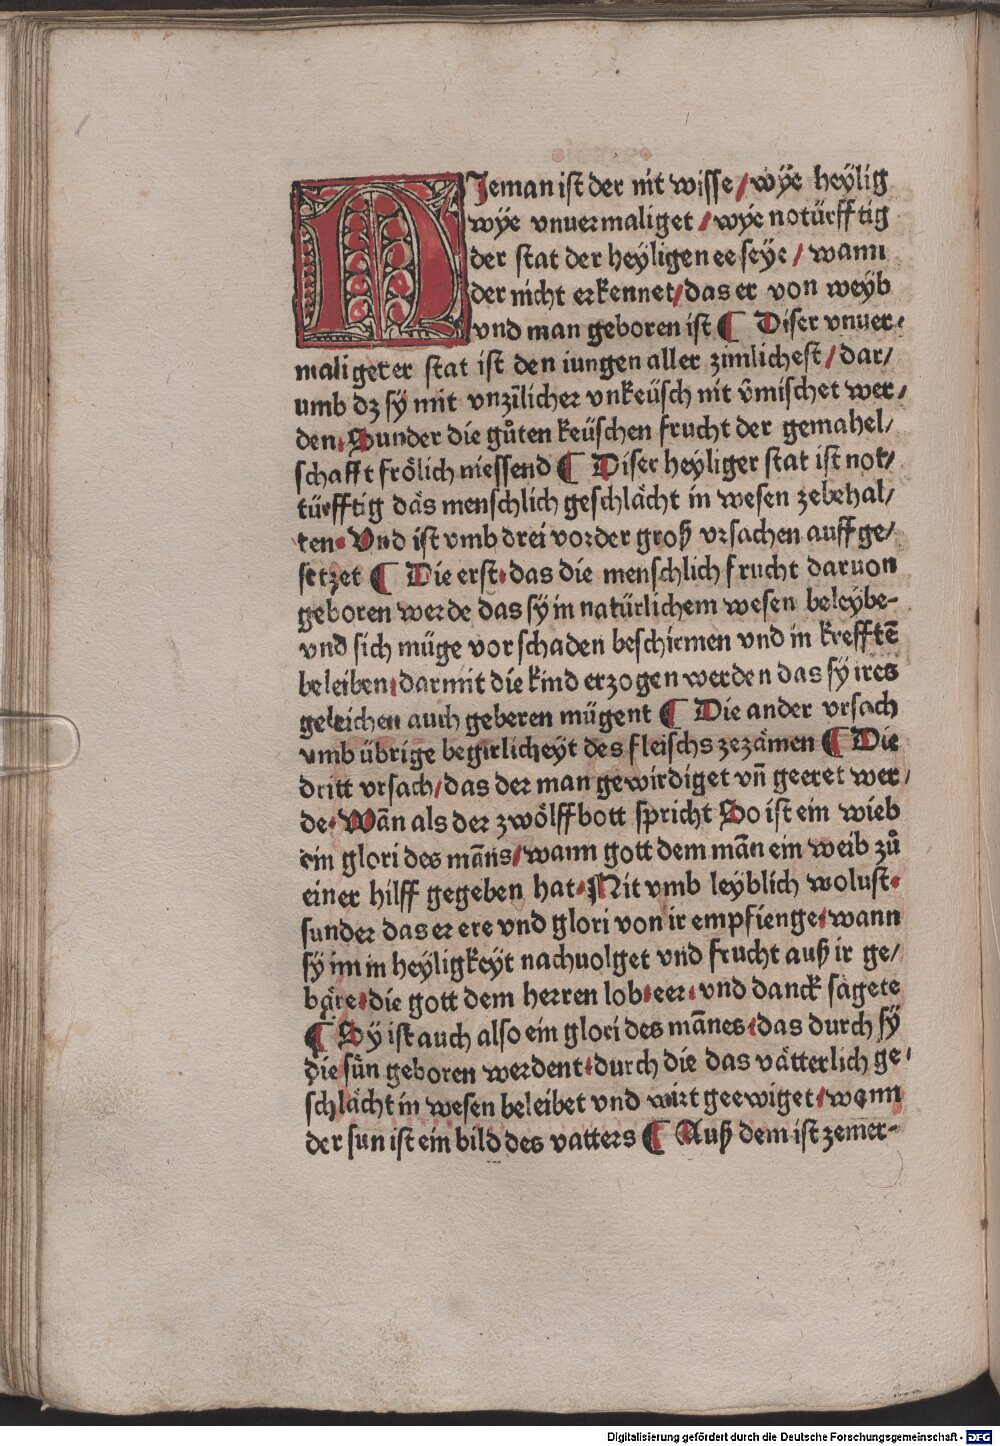 NJeman ist der nit wisse / wÿe heÿlig
wÿe vnuermaliget / wÿe notürfftig
der stat der heÿligen ee seÿe / wann
der nicht erkennet / das er von weÿb
vnd man geboren ist ¶ Diser vnuer-
maligeter stat ist den iungen aller zimlichest / dar/
umb dz sÿ mit vnzīlicher vnkeüsch nit v̄mischet wer/
den. Sunder die gůten keüschen frucht der gemahel/
schafft frölich niessend ¶ Diser heyliger stat ist not/
türfftig däs menschlich geschlächt in wesen zebehal/
ten. Vnd ist vmb drei vorder groß vrsachen auffge/
setzet ¶ Die erst. das die menschlich frucht daruon
geboren werde das sÿ in natürlichem wesen beleybe-
vnd sich müge vor schaden beschirmen vnd in krefftē
beleiben. darmit die kind erzogen werden das sÿ ires
geleichen auch geberen mügent ¶ Die ander vrsach
vmb übrige begirlicheÿt des fleischs zezämen ¶ Die
dritt vrsach / das der man gewirdiget vn̄ geeret wer/
de. Wān als der zwölffbott spricht So ist ein wieb
ein glori des māns / wann gott dem mān ein weib zů
einer hilff gegeben hat. Nit vmb leÿblich wolust.
sunder das er ere vnd glori von ir empfienge. wann
sÿ im in heÿligkeÿt nachuolget vnd frucht auß ir ge/
bäre. die gott dem herren lob. eer. vnd danck sagete
¶ Sy ist auch also ein glori des mānes. das durch sÿ
die sün geboren werdent. durch die das vätterlich ge/
schlächt in wesen beleibet vnd wirt geewiget / wann
der sun ist ein bild des vatters ¶ Auß dem ist zemer-
Digitalisierung gefördert durch die Deutsche Forschungsgemeinschaft - DFG